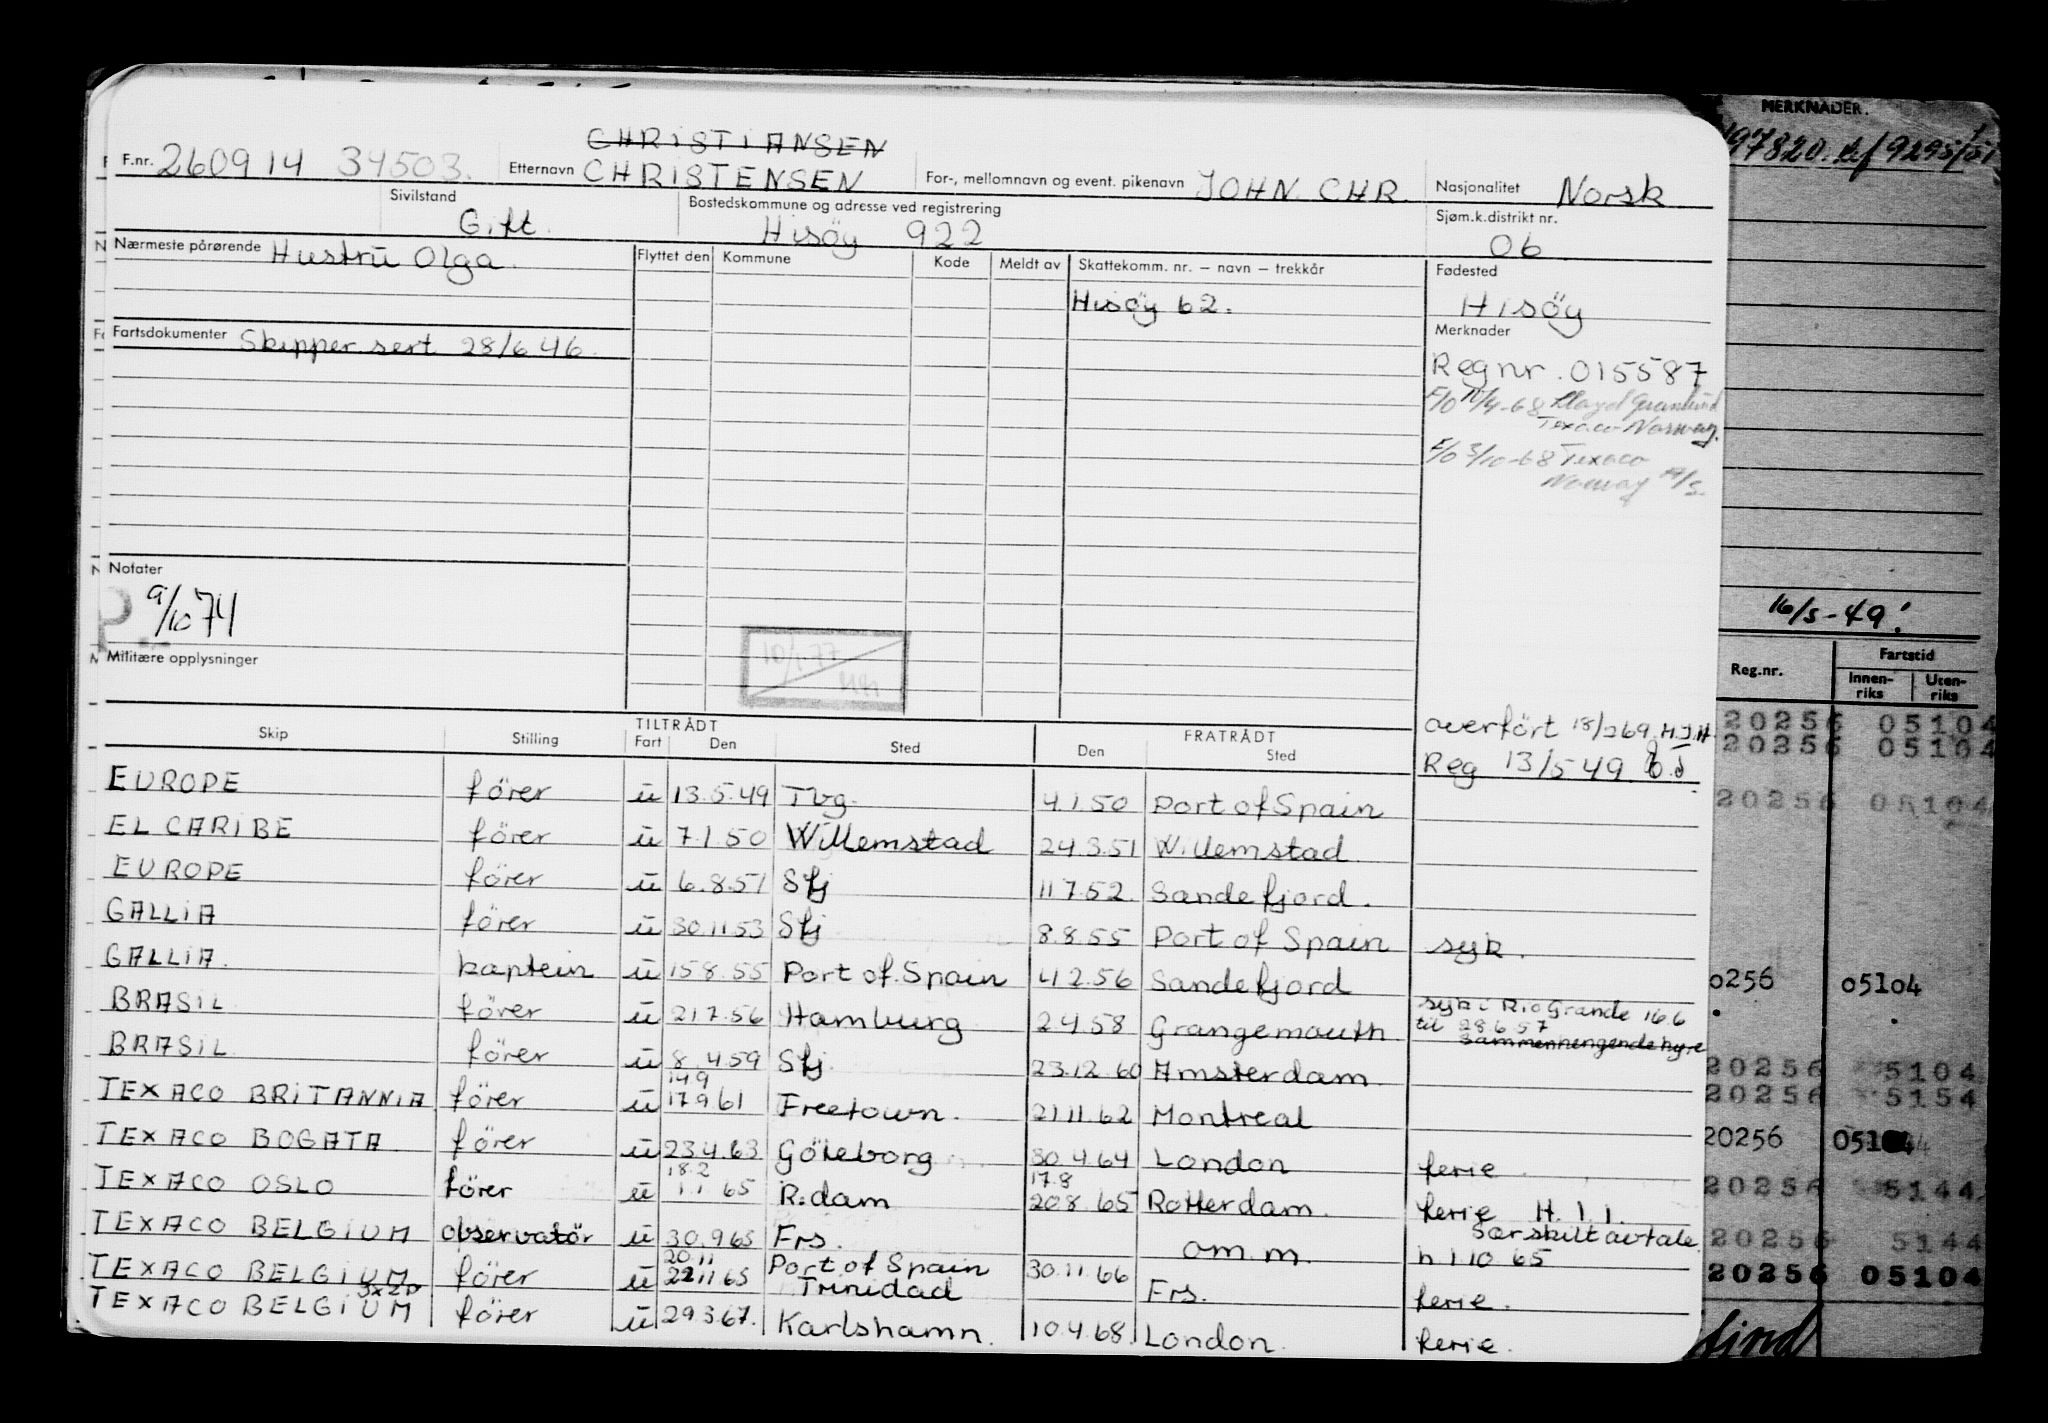 CHRISTIANSEN
F.nr. 260914 34503. Etternavn CHRISTENSEN For-, mellomnavn og event. pikenavn JOHN. CHR. Nasjonalitet Norsk
Sivilstand Gift. Bostedskommune og adresse ved registrering Hisöy 922 Sjøm.k.distrikt nr. 06
Nærmeste pårørende Hustrū Olga. Flyttet den Kommune Kode Meldt av Skattekomm. nr. – navn – trekkår Fødested
Hisöy 62. Hisöy
Fartsdokumenter Skipper.sert 28/6 46. Merknader
Regnr. 015587
F/O /4-68 Texaco Norway.
F/O 3/10-68 Texaco
Norway
Notater
9/10 74
Militære opplysninger
10/1 77
overført 18/2 69. H.J.H
Reg 13/5 49
Skip Stilling TILTRÅDT Fart Den Sted FRATRÅDT Den Sted
EUROPE förer ū 13.5.49 Tbg. 4.1.50 Port of Spain
EL CARIBE förer ū 7.1.50 Willemstad 24.3.51 Willemstad
EUROPE förer ū 6.8.51 Sfj 11 7.52. Sandefjord.
GALLIA förer ū 30.11 53 Sfj 8.8.55 Port of Spain syk.
GALLIA. kaptein ū 15 8.55 Port of Spain 4 1 2.56 Sandefjord
BRASIL förer ū 21 7.56 Hamburg 2 4.58 Grangemouth syk i Rio Grande 16.6
til 28.6.57
Sammenhengende hyre
BRASIL förer ū 8.4.59 Sfj. 23.12.60 Amsterdam
14.9
TEXACO BRITANNIA förer ū 17.9 61 Freetown. 21.11.62 Montreal
TEXACO BOGATA förer ū 23.4.63 Göteborg 30.4.64 London ferie.
18.2 17.8
TEXACO OSLO förer ū 1.1.65 R.dam 20.8.65 Rotterdam. ferie H.I.I.
TEXACO BELGIUM observatör ū 30.9.65 Frs. om.m. Særskilt avtale
h 1 10 65
20.11
TEXACO BELGIUM förer ū 22.11.65 Port of Spain Trinidad 30.11.66 Frs. ferie.
TEXACO BELGIUM förer ū 29.3.67. Karlshamn. 10.4.68. London. ferie.
MERKNADER.
97820. 9295/51
16/5-49!
Reg.nr. Fartstid
Innen-riks Uten-riks
20256 05104
20256 05104
20256 05104
0256 05104
20256 5104
20256 5154
20256
20256 5144
20256 5144
20256 05104